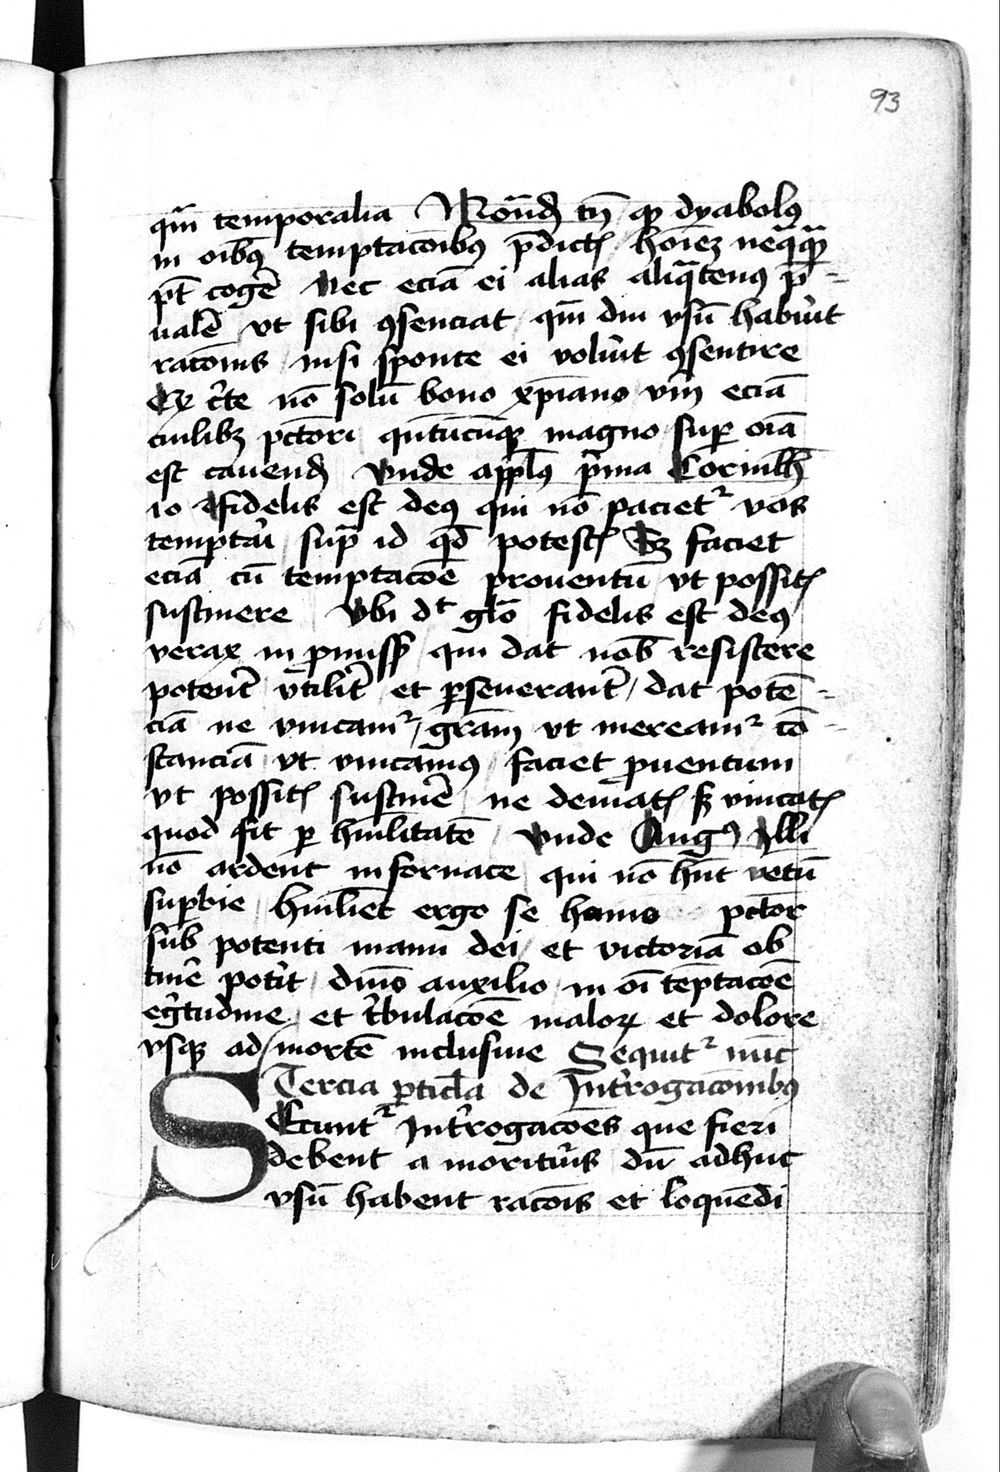 93
qm̄ temporalia Notand̄ tn̄ qꝫ dyabolꝰ
in oībꝰ temptacōibꝰ p̄dictꝭ hoīeꝫ neq̄q̄ꝫ
pt̄ cogē̄ Nec eciā ei alias aliq̄tenꝰ p̄-
ualē̄ vt sibi ꝯsenciat qm̄ diu vsū habuīt
racōnis nisi sponte ei voluīt ꝯsentire
Qꝫ c̄te nō solū bono xp̄iano vn̄ eciā
cuilibꝫ pctōri qn̄tūcūqꝫ magno sup̱ oīa
est cauend̄ Vnde appl̄ꝰ p̄ma Corinth̄
10 Fidelis est deꝰ qui nō paciet᷑ vos
temptāi sup̄ id qd̄ potestꝭ Sꝫ faciet
eciā cū temptacōe prouentū vt possitꝭ
sustinere Vbi dt̄ glō fidelis est deꝰ
verax in pmissꝭ qui dat nob̄ resistere
potent̄ vtilit̄ et ꝑseuerant̄ dat potē-
ciā ne vincam᷑ grām vt meream᷑ cō-
stanciā vt vincamꝰ faciet ꝓuentum
vt possitꝭ sustinē̄ ne deuiatꝭ sꝫ vincatꝭ
quod fit ꝑ hūilitatē Vnde Augꝰ Illi
nō ardent in fornace qui nō hn̄t vētū
sup̱bie hūiliet ergo se homo pctōr
sub potenti manu dei et victoriā ob
tinē̄ pot̄it diūo auxilio in oī tēptacōe
eḡtudine et t̄bulacōe maloꝝ et dolore
vsqꝫ ad mortē inclusiue Sequit᷑ nūc
Tercia ꝑticl̄a de Int̄rogacōnibus
SEcunt᷑ Int̄rogacōes que fieri
debent a moritur̄is dū adhuc
vsū habent racōis et loquēdi